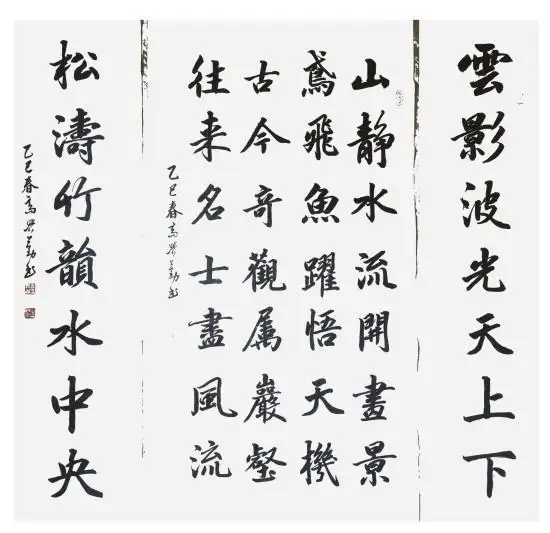 雲影波光天上下
山靜水流開畫景
鳶飛魚躍悟天機
古今奇觀属巖壑
往来名士盡風流
乙巳春高
松濤竹韻水中央
乙巳春高